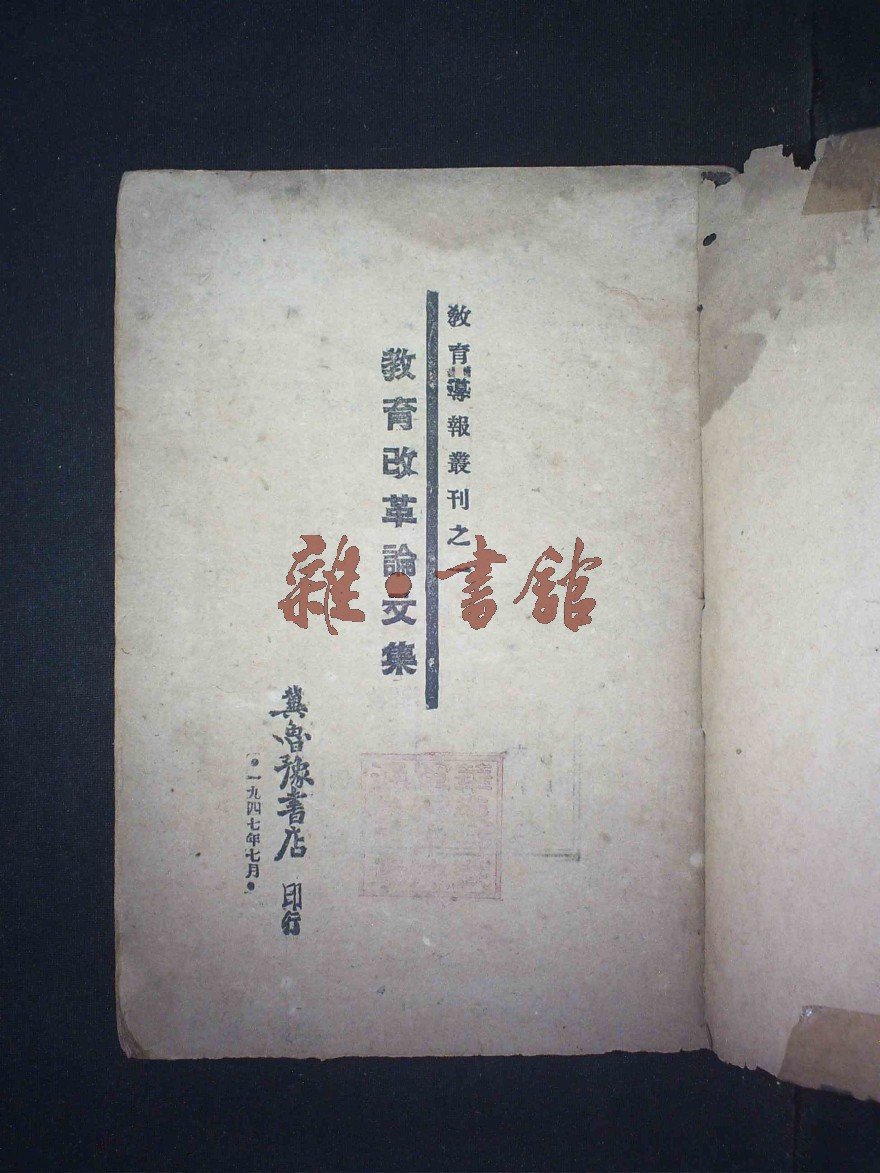 教育導報叢刊之一
教育改革論文集
冀魯豫書店 印行
一九四七年七月
雜·書館